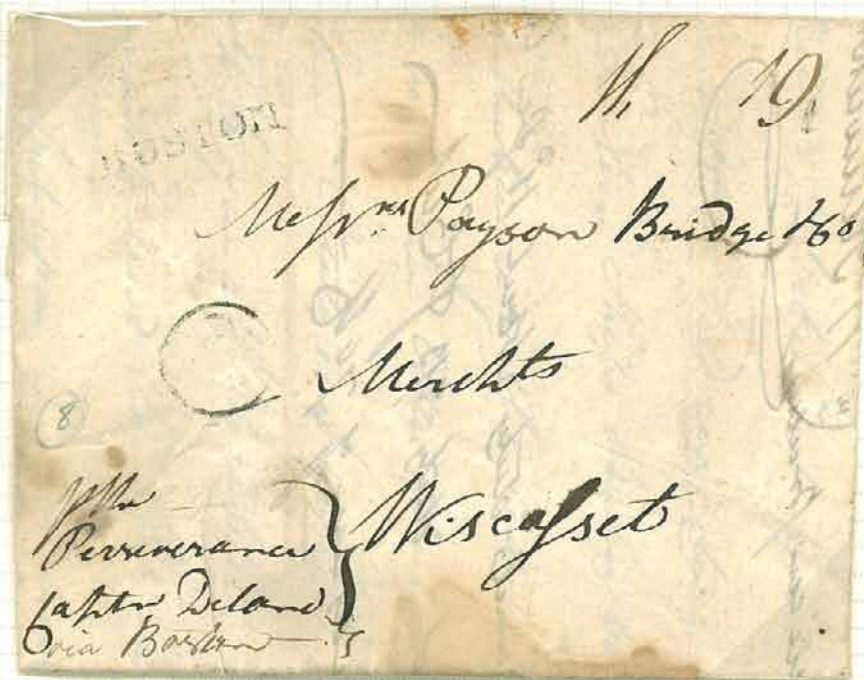 Sh. 19.
BOSTON
Messrs. Payson Bridge & Co
Merchts
Wiscasset
pr Ship
Perseverance
Captn Delano
via Boston
8